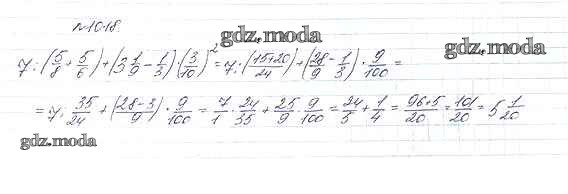 №1018.
gdz.moda
gdz.moda
7:(5/8+5/6)+(3 1/9-1/3)·(3/10)²=7:(15+20/24)+(28/9-1/3)·9/100=
=7:35/24+(28-3/9)·9/100=7/1·24/35+25/9·9/100=24/5+1/4=96+5/20=101/20=5 1/20
gdz.moda